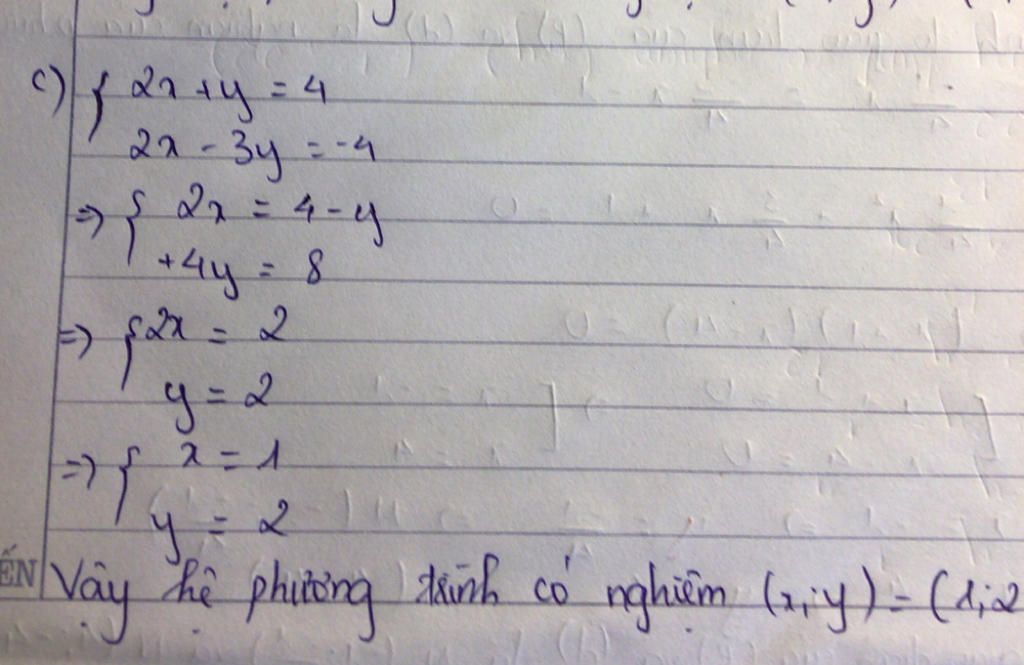 c) { 2x + y = 4
2x - 3y = -4
=> { 2x = 4 - y
+4y = 8
=> { 2x = 2
y = 2
=> { x = 1
y = 2
ẾN Vậy hệ phương trình có nghiệm (x;y) = (1;2